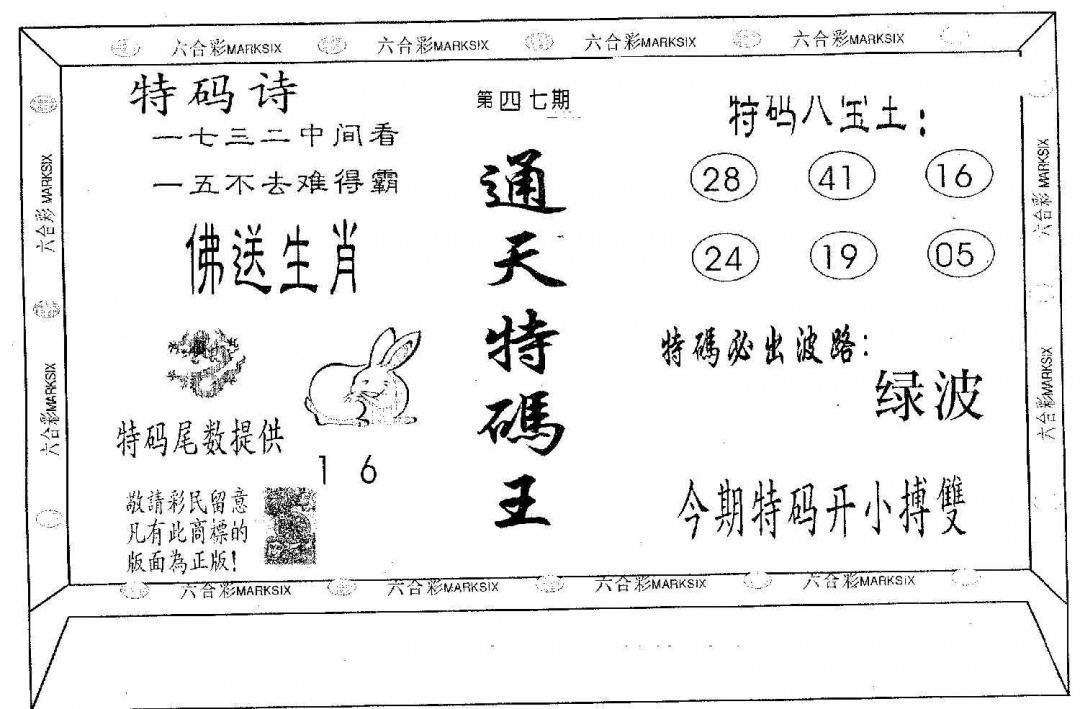 六合彩MARKSIX 六合彩MARKSIX 六合彩MARKSIX 六合彩MARKSIX
特码诗
一七三二中间看
一五不去难得霸
佛送生肖
特码尾数提供
1 6
敬請彩民留意
凡有此商標的
版面為正版!
第四七期
通天特碼王
特码八宝王:
28 41 16
24 19 05
特碼必出波路:
绿波
今期特码开小搏雙
六合彩MARKSIX
六合彩MARKSIX
六合彩MARKSIX
六合彩MARKSIX
六合彩MARKSIX 六合彩MARKSIX 六合彩MARKSIX 六合彩MARKSIX